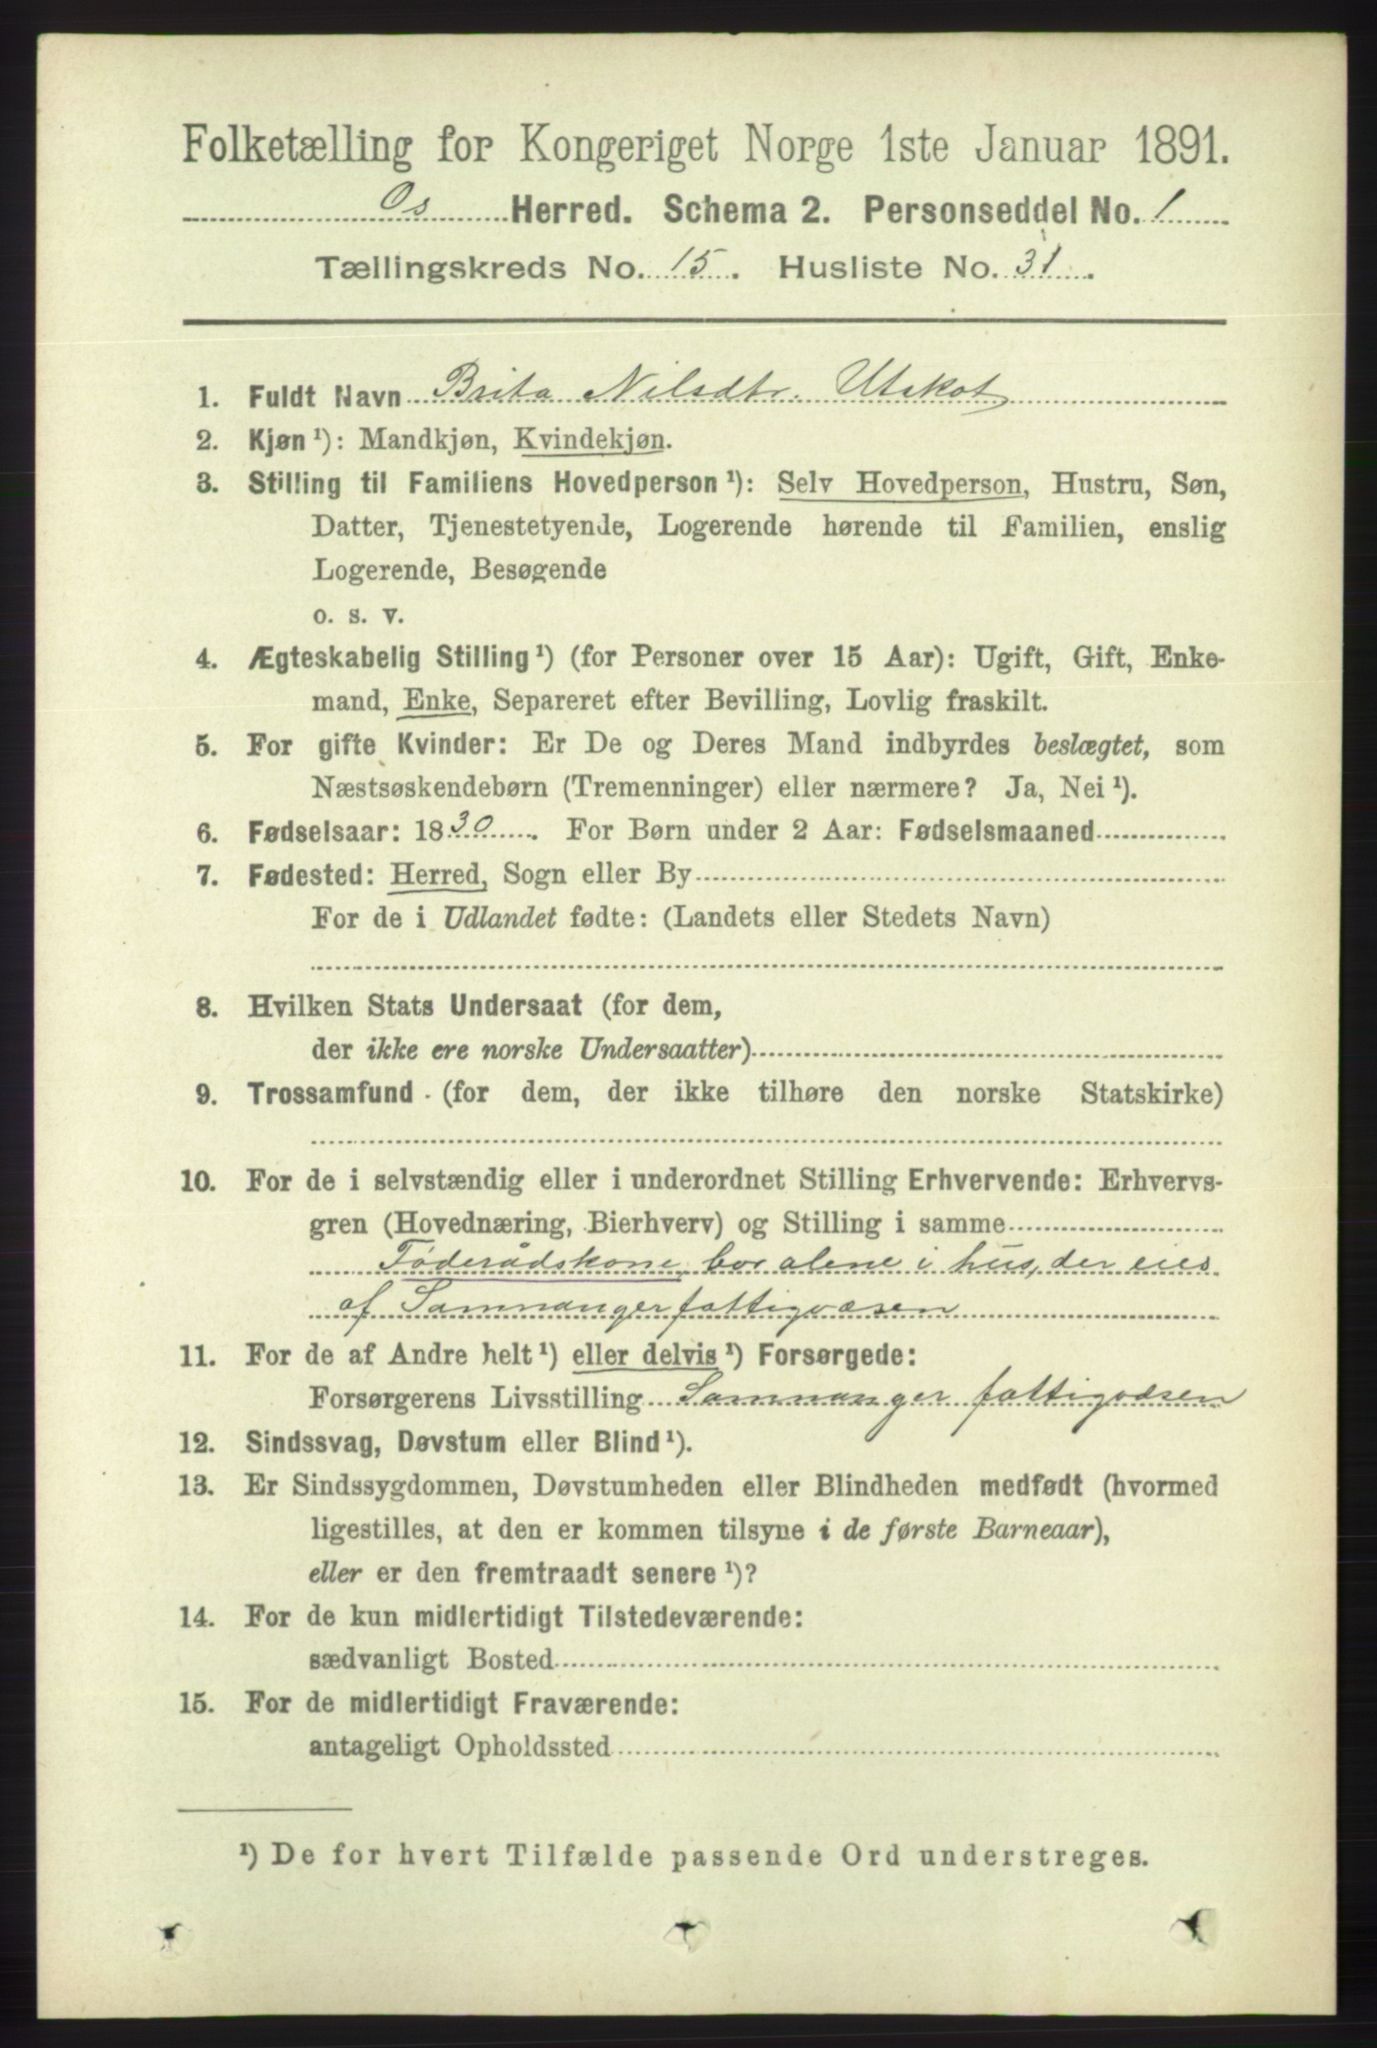 Folketælling for Kongeriget Norge 1ste Januar 1891.
Os Herred. Schema 2. Personseddel No. 1
Tællingskreds No. 15. Husliste No. 31.
1. Fuldt Navn Brita Nilsdtr. Utskot
2. Kjøn ¹): Mandkjøn, Kvindekjøn.
3. Stilling til Familiens Hovedperson ¹): Selv Hovedperson, Hustru, Søn,
Datter, Tjenestetyende, Logerende hørende til Familien, enslig
Logerende, Besøgende
o. s. v.
4. Ægteskabelig Stilling ¹) (for Personer over 15 Aar): Ugift, Gift, Enke-
mand, Enke, Separeret efter Bevilling, Lovlig fraskilt.
5. For gifte Kvinder: Er De og Deres Mand indbyrdes beslægtet, som
Næstsøskendebørn (Tremenninger) eller nærmere? Ja, Nei ¹).
6. Fødselsaar: 1830. For Børn under 2 Aar: Fødselsmaaned
7. Fødested: Herred, Sogn eller By
For de i Udlandet fødte: (Landets eller Stedets Navn)
8. Hvilken Stats Undersaat (for dem,
der ikke ere norske Undersaatter)
9. Trossamfund (for dem, der ikke tilhøre den norske Statskirke)
10. For de i selvstændig eller i underordnet Stilling Erhvervende: Erhvervs-
gren (Hovednæring, Bierhverv) og Stilling i samme
Føderådskone, bor alene i hus, der eies
af Samnanger fattigvæsen
11. For de af Andre helt ¹) eller delvis ¹) Forsørgede:
Forsørgerens Livsstilling Samnanger fattigvæsen
12. Sindssvag, Døvstum eller Blind ¹).
13. Er Sindssygdommen, Døvstumheden eller Blindheden medfødt (hvormed
ligestilles, at den er kommen tilsyne i de første Barneaar),
eller er den fremtraadt senere ¹)?
14. For de kun midlertidigt Tilstedeværende:
sædvanligt Bosted
15. For de midlertidigt Fraværende:
antageligt Opholdssted
¹) De for hvert Tilfælde passende Ord understreges.